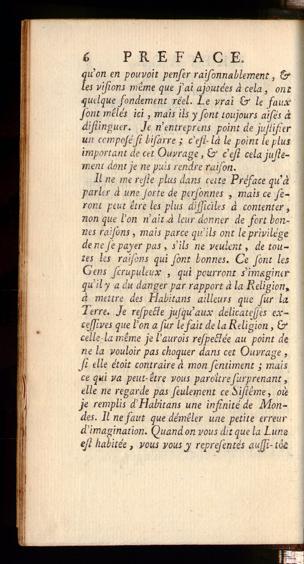 6 PREFACE.
qu'on en pouvoit penser raisonnablement, &
les visions même que j'ai ajoutées à cela, ont
quelque fondement réel. Le vrai & le faux
sont mêlés ici, mais ils y sont toujours aisés à
distinguer. Je n'entreprens point de justifier
un composé si bisarre; c'est-là le point le plus
important de cet Ouvrage, & c'est cela juste-
ment dont je ne puis rendre raison.
Il ne me reste plus dans cette Préface qu'à
parler à une sorte de personnes, mais ce se-
ront peut être les plus difficiles à contenter,
non que l'on n'ait à leur donner de fort bon-
nes raisons, mais parce qu'ils ont le privilége
de ne se payer pas, s'ils ne veulent, de tou-
tes les raisons qui sont bonnes. Ce sont les
Gens scrupuleux, qui pourront s'imaginer
qu'il y a du danger par rapport à la Religion,
à mettre des Habitans ailleurs que sur la
Terre. Je respecte jusqu'aux délicatesses ex-
cessives que l'on a sur le fait de la Religion, &
celle-la même je l'aurois respectée au point de
ne la vouloir pas choquer dans cet Ouvrage,
si elle étoit contraire à mon sentiment; mais
ce qui va peut-être vous paroître surprenant,
elle ne regarde pas seulement ce Sistême, où
je remplis d'Habitans une infinité de Mon-
des. Il ne faut que démêler une petite erreur
d'imagination. Quand on vous dit que la Lune
est habitée, vous vous y représentés aussi-tôt